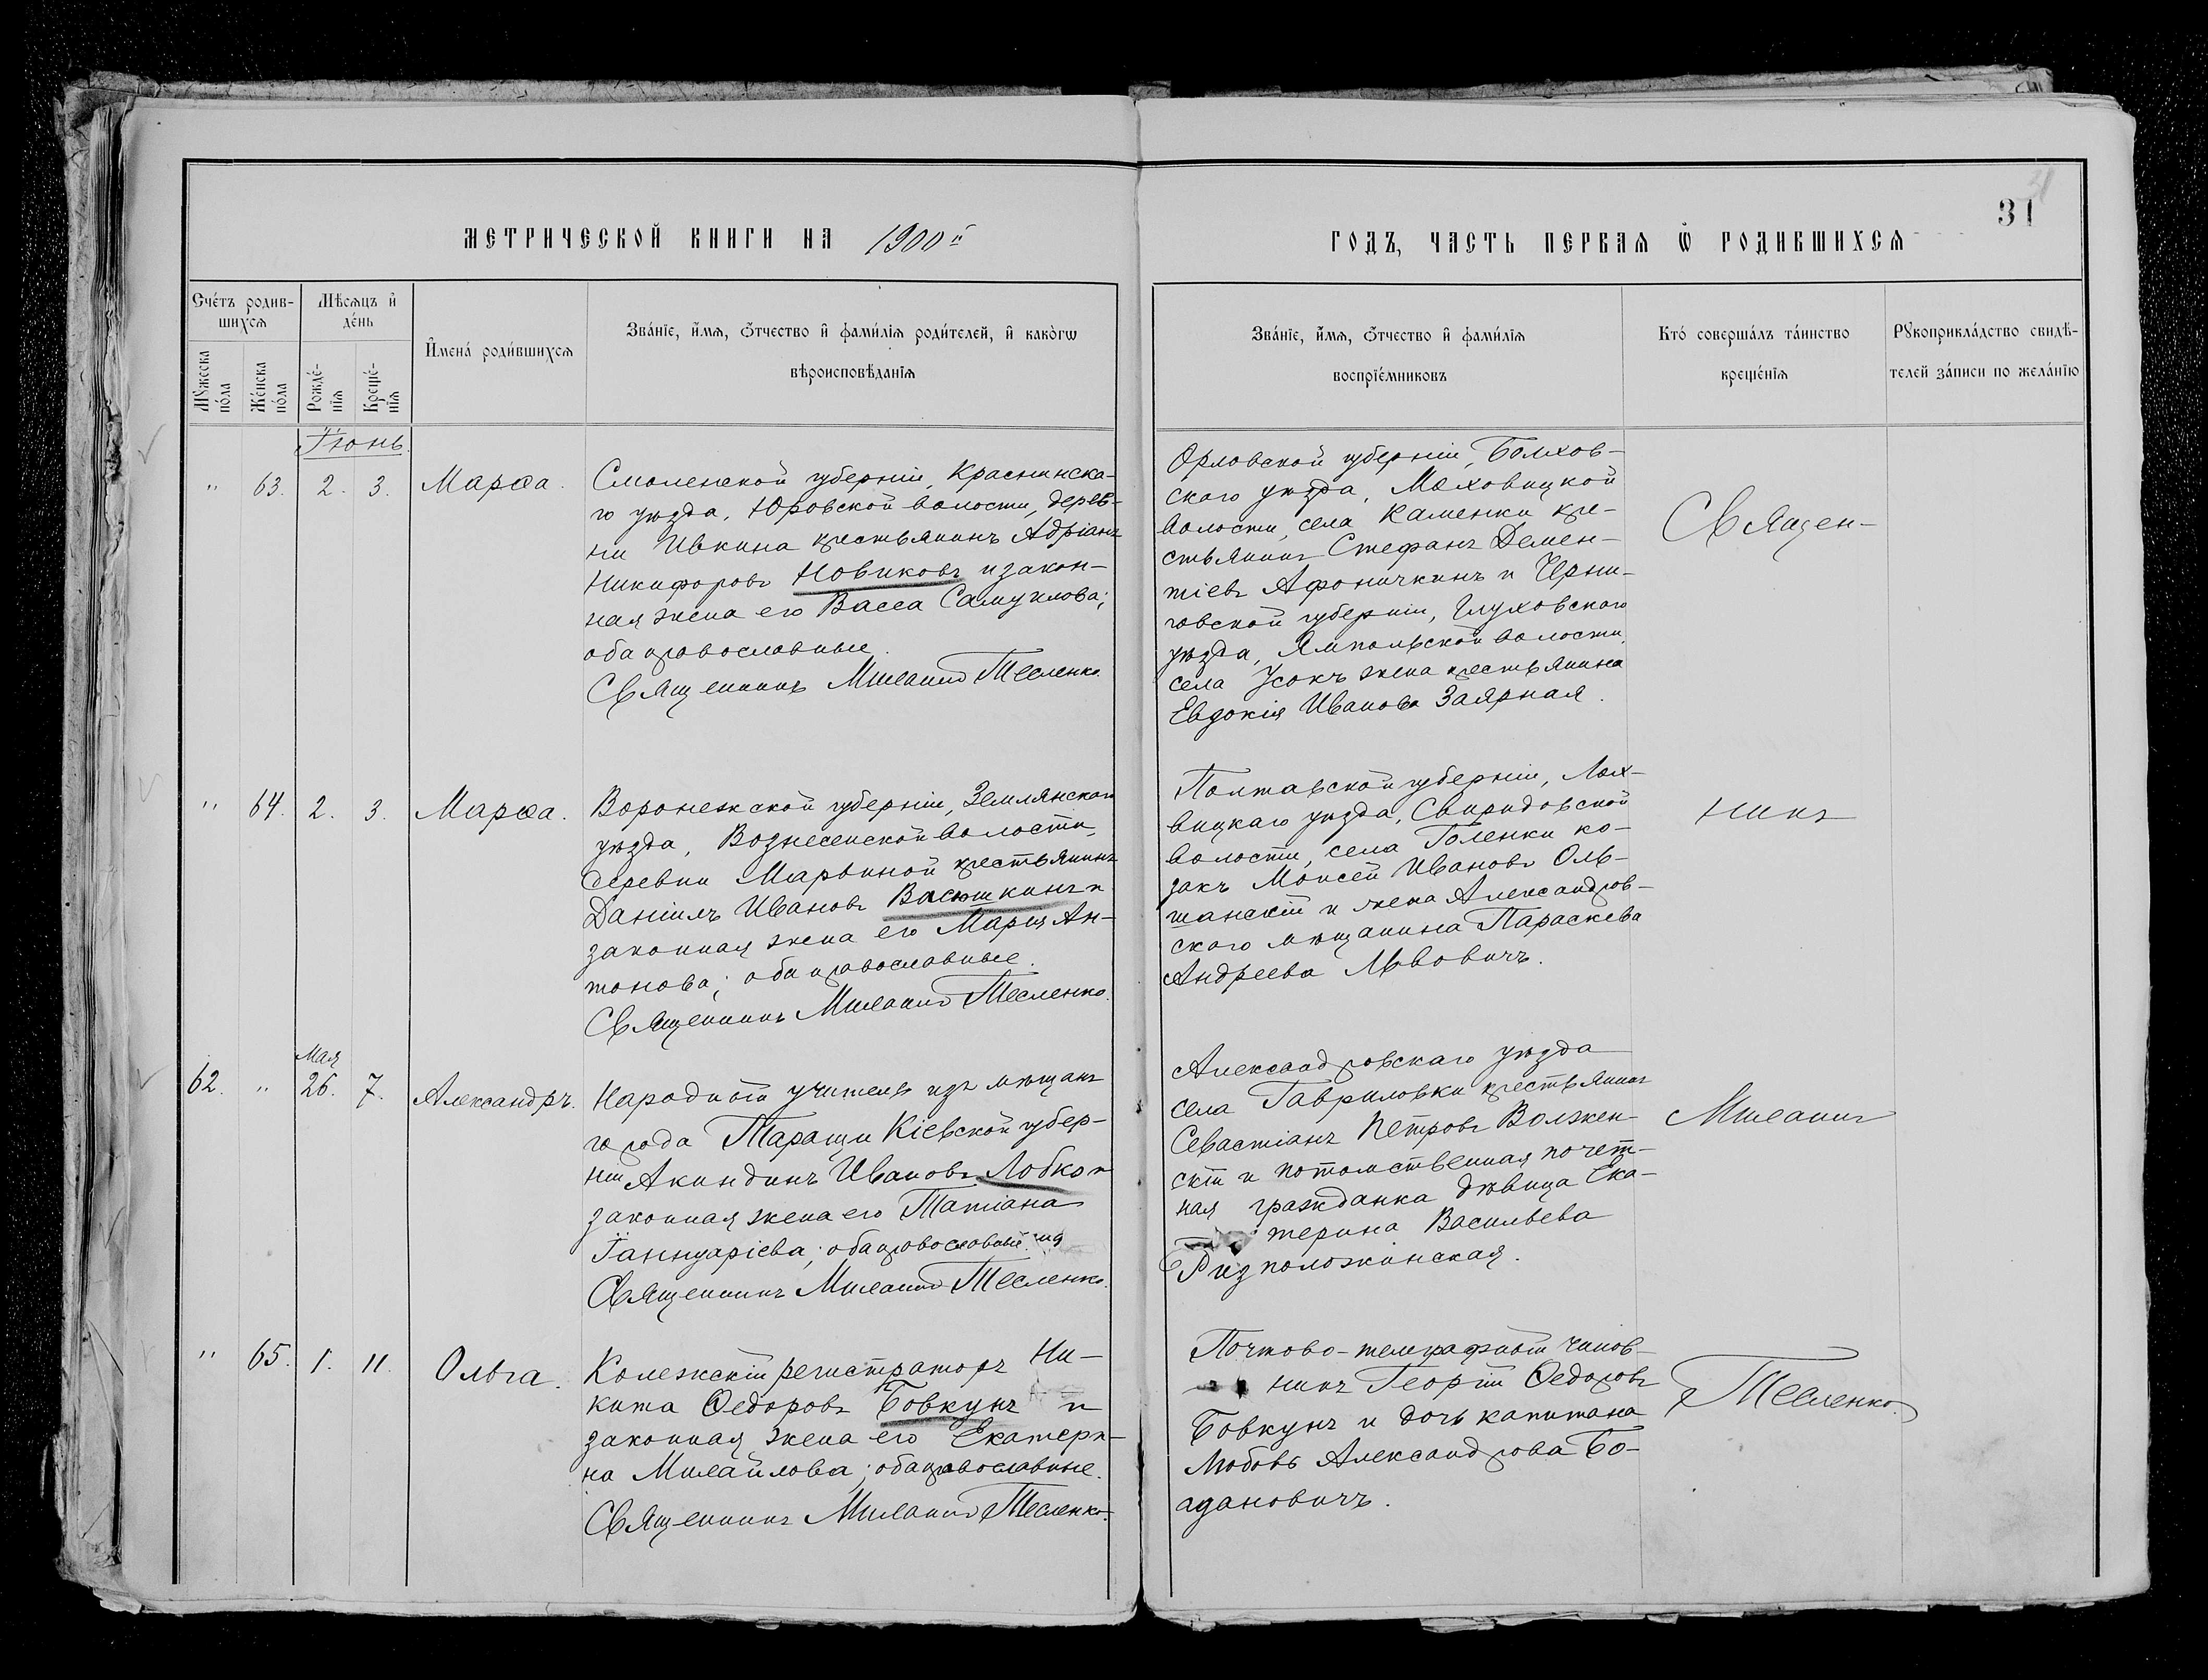 31
МЕТРИЧЕСКОЙ КНИГИ НА 1900й
ГОДЪ, ЧАСТЬ ПЕРВАЯ Ѿ РОДИВШИХСЯ
Счéтъ родив-
шихсѧ
Мѣсѧцъ и҆
дéнь
Мꙋ́жеска
пóла
Жéнска
пóла
Рождé-
нїѧ
Крещé-
нїѧ
И҆мена̀ роди́вшихсѧ
Звáнїе, и҆́мѧ, ѻ҆́тчество и҆ фами́лїѧ роди́телей, и҆ какóгѡ
вѣроисповѣ́данїѧ
Звáнїе, и҆́мѧ, ѻ҆́тчество и҆ фами́лїѧ
воспрїéмниковъ
Ктó совершáлъ тáинство
крещéнїѧ
Рꙋкоприклáдство свидѣ́-
телей зáписи по желáнїю
Іюнь.
" 63. 2. 3. Марѳа.
Смоленской губерніи, Краснинска-
го уѣзда, Юровской волости, дерев-
ни Ивкина крестьянинъ Адріанъ
Никифоровъ Новиковъ и закон-
ная жена его Васса Самуилова;
оба православные.
Священникъ Михаилъ Тесленко.
Орловской губерніи, Болхов-
ского уѣзда, Моховицкой
волости, села Каменки кре-
стьянинъ Стефанъ Демен-
тіевъ Афоничкинъ и Черни-
говской губерніи, Глуховского
уѣзда, Ямпольской волости,
села Усокъ жена крестьянина
Евдокія Иванова Заярная.
Священ-
" 64. 2. 3. Марѳа.
Воронежской губерніи, Землянскаго
уѣзда, Вознесенской волости,
деревни Марьиной крестьянинъ
Даніилъ Ивановъ Васюшкинъ и
законная жена его Марія Ан-
тонова; оба православные.
Священникъ Михаилъ Тесленко.
Полтавской губерніи, Лох-
вицкаго уѣзда, Свиридовской
волости, села Голенки ко-
закъ Моисей Ивановъ Оль-
шанскій и жена Александров-
ского мѣщанина Параскева
Андреева Львовичъ.
никъ
Мая
62. " 26. 7. Александръ.
Народный учитель изъ мѣщанъ
города Таращи Кіевской губер-
ніи Акиндинъ Ивановъ Лобко и
законная жена его Татіана
Іаннуаріева; оба православные.
Священникъ Михаилъ Тесленко.
Александровскаго уѣзда
села Гавриловки крестьянинъ
Севастіанъ Петровъ Волжен-
скій и потомственная почет-
ная гражданка дѣвица Ека-
терина Васильева
Ризположинская.
Михаилъ
" 65. 1. 11. Ольга.
Колежскій регистраторъ Ни-
кита Ѳедоровъ Бовкунъ и
законная жена его Екатери-
на Михайлова; оба православные.
Священникъ Михаилъ Тесленко.
Почтово-телеграфный чинов-
никъ Георгій Ѳедоровъ
Бовкунъ и дочь капитана
Любовь Александрова Бо-
адановичъ.
Тесленко.